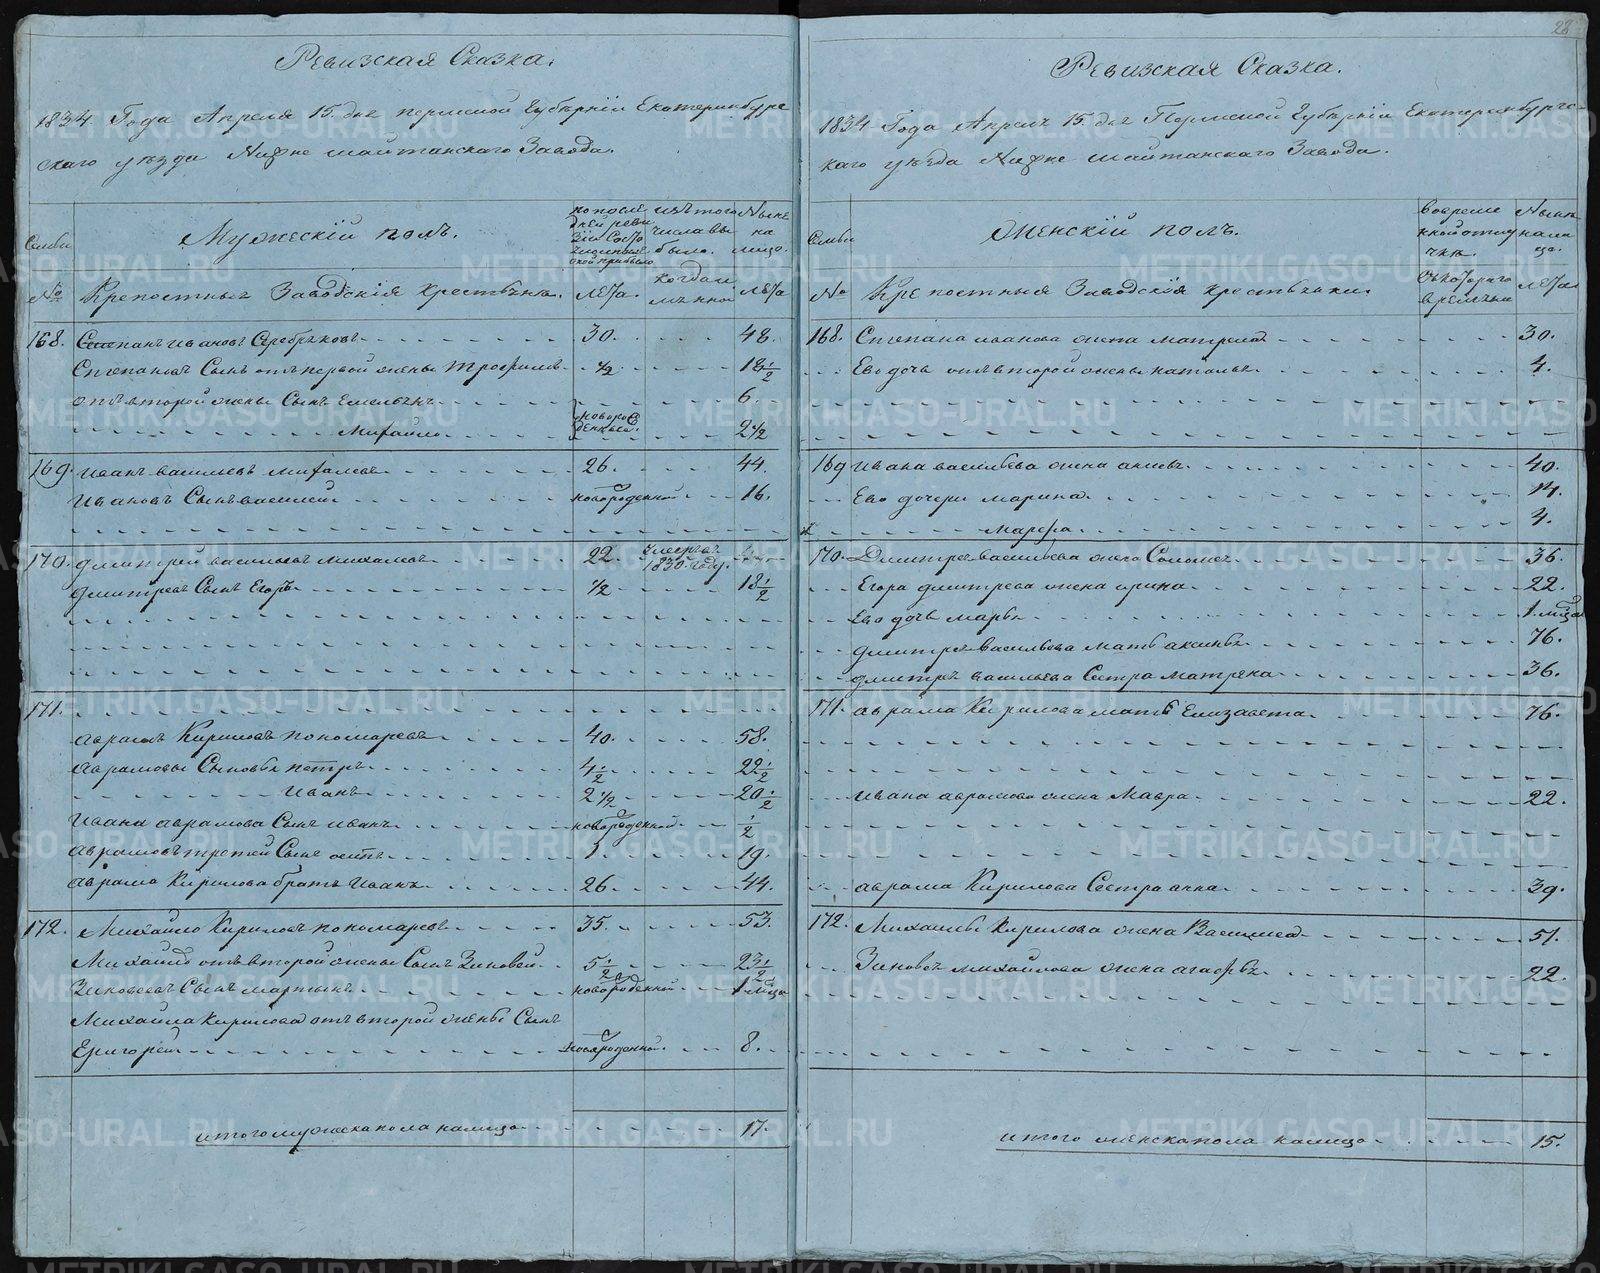 Ревизская Сказка.
1834 Года Апреля 15. дня Пермской Губерніи Екатеринбургс
скаго уѣзда Нижне шайтанскаго Завода.
Семьи
Мужескій полъ.
по послѣ
дней реви
зіи Состо
яло и после
оной прибыло
изъ того
числа вы
было.
Нынѣ
на
лицо.
№
Крепостные Заводскія крестьяне.
лѣта.
когда и
лѣта
168. Степанъ ивановъ Серебряковъ 30. 48.
Степановъ Сынъ отъ первой жены трофимъ ½ 18½
отъ второй жены Сынъ Емельянъ 6.
Михайло новорожденные. 2½
169. иванъ васильевъ михалевъ 26. 44.
ивановъ Сынъ василей новорожденной 16.
170. дмитрей васильевъ михалевъ 22. Умеръ въ 1830 году.
дмитревъ Сынъ Егоръ ½ 18½
171.
аврамъ Кириловъ пономаревъ 40. 58.
аврамовы Сыновья петръ 4½ 22½
иванъ 2½ 20½
ивана аврамова Сынъ иванъ новорожденной ½
аврамовъ третей Сынъ осипъ 1 19.
аврама Кирилова братъ иванъ 26. 44.
172. Михайло Кириловъ пономаревъ 35. 53.
Михайло отъ второй жены Сынъ Зиновей 5½ 23½
Зиновеевъ Сынъ мартынъ новорожденной 1 мѣсц
Михайла Кирилова отъ второй жены Сынъ
Григорей новорожденной. 8.
итого мужеска пола налицо 17.
28
Ревизская Сказка.
1834 Года Апреля 15. дня Пермской Губерніи Екатеринбургс-
каго уѣзда Нижне шайтанскаго Завода.
Семьи
Женскій полъ.
во време
нной отлу
чкѣ.
Нынѣ
на ли
цо.
№
Крепостныя Заводскія крестьянки.
Съ котораго
времени
лѣта
168. Степана иванова жена матрена 30.
Ево дочь отъ второй жены наталья 4.
169 ивана васильева жена анисья 40.
Ево дочери марина 14.
марфа 4.
170. Дмитрея васильева жена Соломея 36.
Егора дмитрева жена ирина 22.
Ево дочь марья 1. мѣсца
дмитрея васильева мать аксинья 76.
дмитрея васильева Сестра матрена 36.
171. аврама Кирилова мать Елизавета 76.
ивана аврамова жена Мавра 22.
аврама Кирилова Сестра анна 39.
172. Михайлы Кирилова жена Василиса 51.
Зиновея михайлова жена агафья 22.
итого женска пола налицо 15.
METRIKI.GASO-URAL.RU